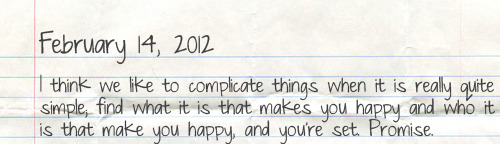 February 14, 2012
I think we like to complicate things when it is really quite
simple; find what it is that makes you happy and who it
is that make you happy, and you're set. Promise.